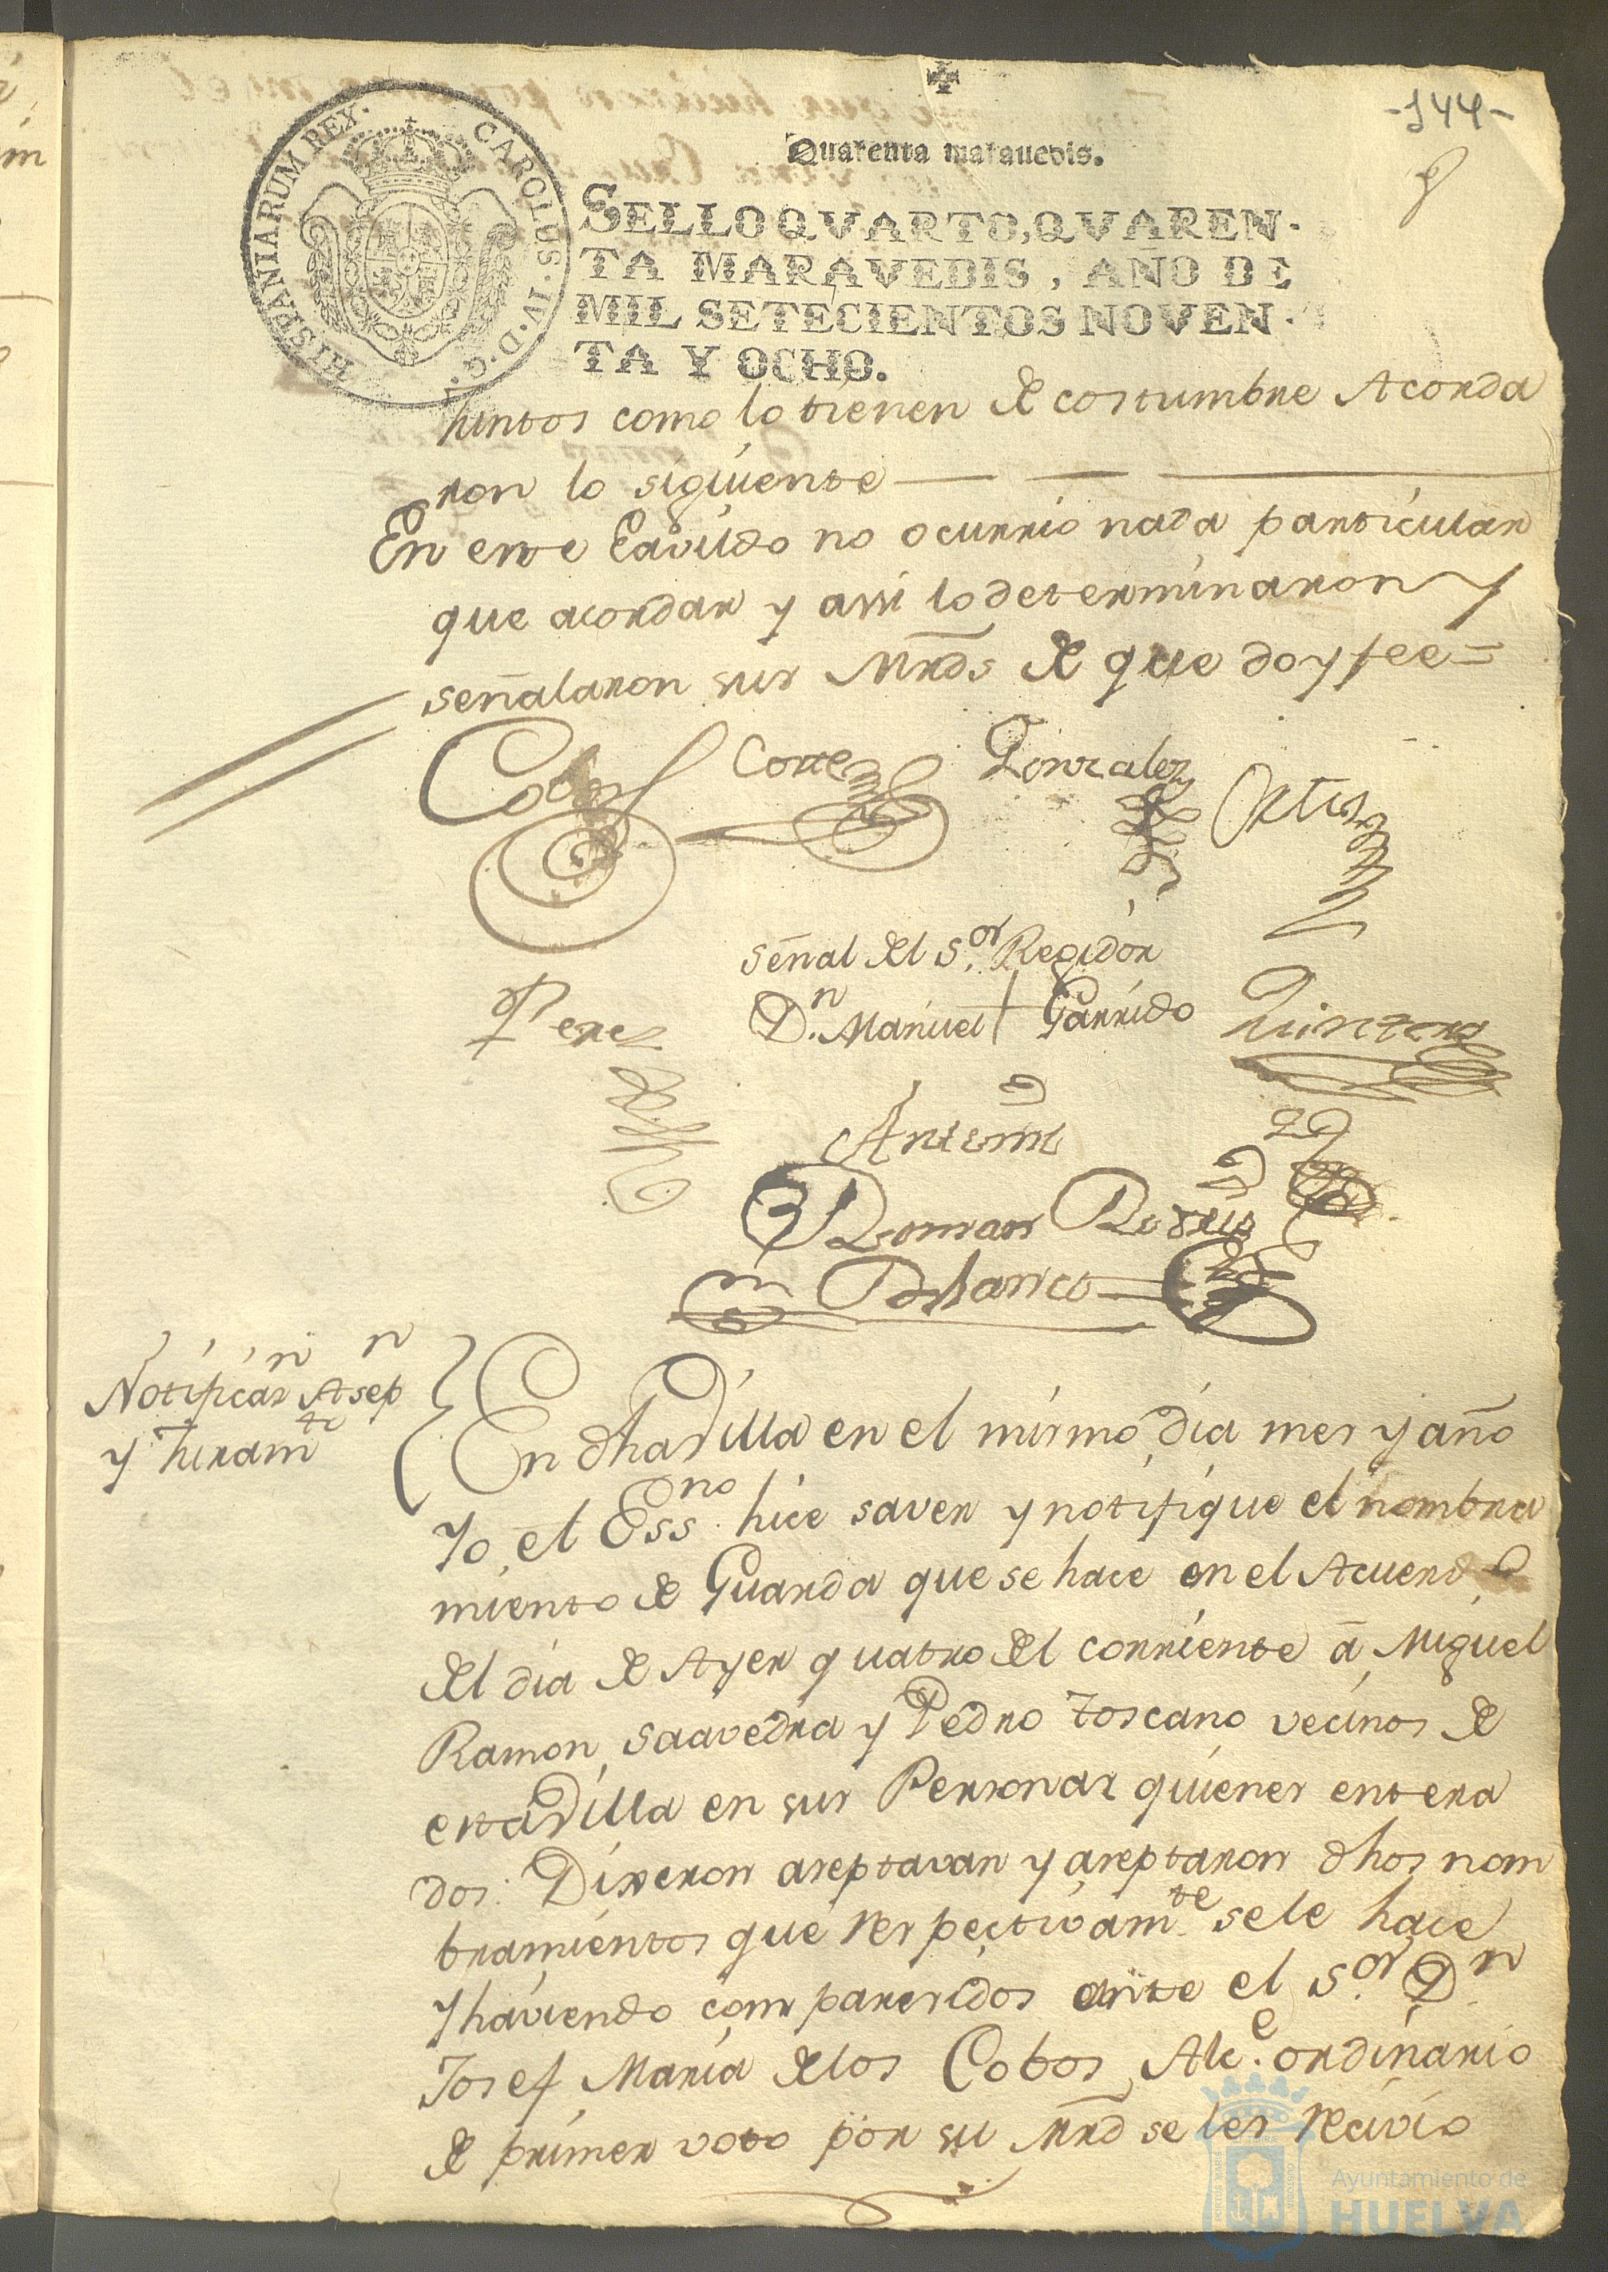 -144-
Quarenta maravedis.
HISPANIARUM REX. CAROLUS. IV. D. G.
SELLO QVARTO, QVAREN-
TA MARAVEDIS, AÑO DE
MIL SETECIENTOS NOVEN-
TA Y OCHO.
Juntos como lo tienen de costumbre Acorda
ron lo siguiente
En este Cavildo no ocurrio nada particular
que acordar y assi lo determinaron y
señalaron sus Mrds de que doy fee=
Cobos Cortes Gonzalez Ortiz
señal del S.or Regidor
Perez D.n Manuel + Garrido Quintero
Antemi
Roman Rodrig
Polanco
Notificaz.n Asep.n
y Juram.to
En dha Villa en el mismo dia mes y año
Yo el Ess.no hice saver y notifique el nombra
miento de Guarda que se hace en el Acuerdo
del dia de Ayer quatro del corriente â Miguel
Ramon Saavedra y Pedro Toscano vecinos de
esta Villa en sus Personas quienes entera
dos: Dixeron aseptavan y aseptaron dhos nom
bramientos que respectivam.te se le hace
y haviendo comparesidos ante el S.or D.n
Josef Maria de los Cobos Alc.e ordinario
de primer voto por su Mrd se les recivio
Ayuntamiento de
HUELVA